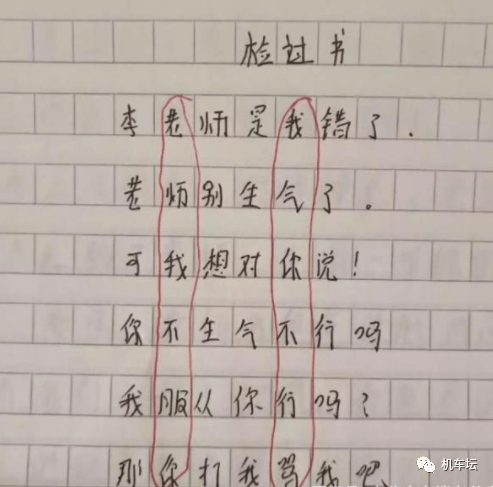 检过书
李老师是我错了.
老师别生气了。
可我想对你说!
你不生气不行吗
我服从你行吗?
那你打我骂我吧
机车坛